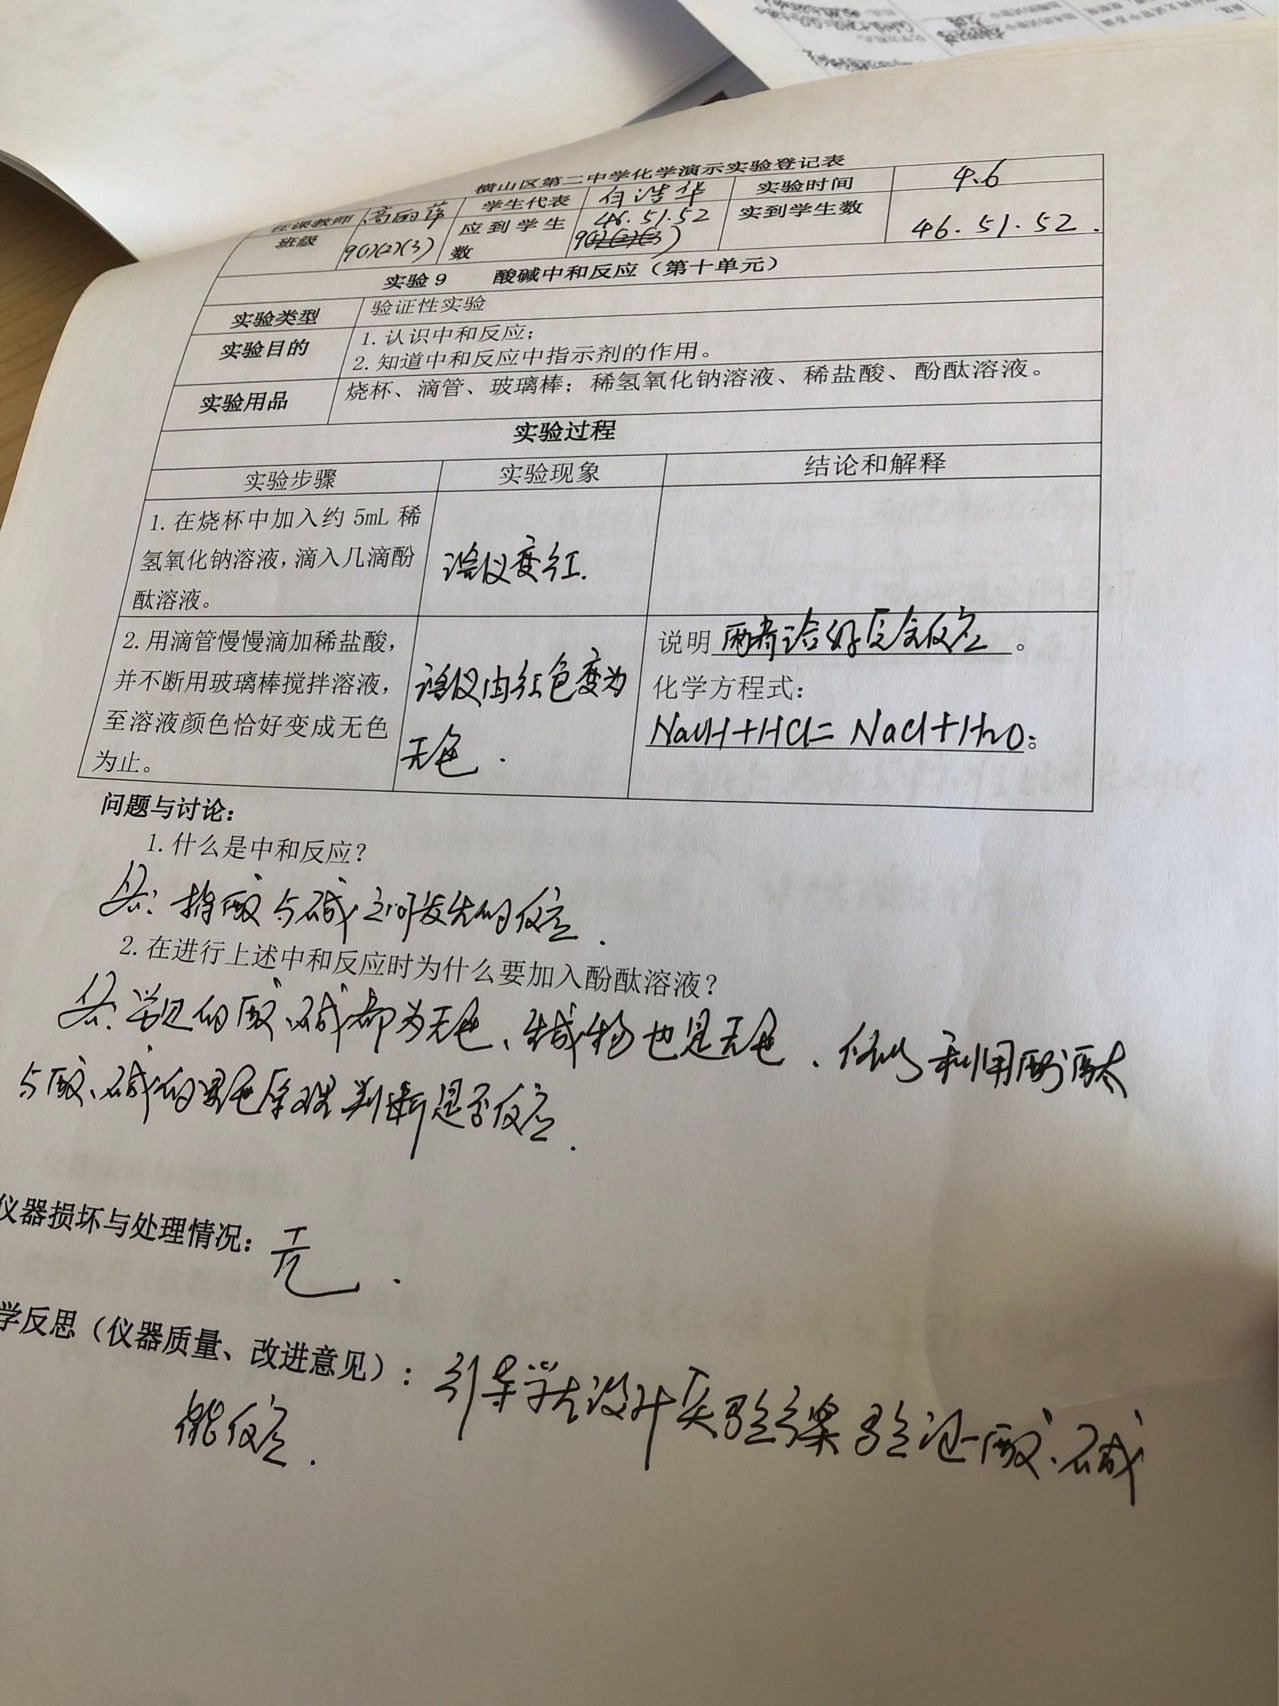 横山区第二中学化学演示实验登记表
任课教师 高丽萍 学生代表 白浩华 实验时间 4.6
班级 9(1)(2)(3) 应到学生数 46.51.52 实到学生数 46.51.52.
实验9 酸碱中和反应（第十单元）
实验类型 验证性实验
实验目的 1.认识中和反应；
2.知道中和反应中指示剂的作用。
实验用品 烧杯、滴管、玻璃棒；稀氢氧化钠溶液、稀盐酸、酚酞溶液。
实验过程
实验步骤 实验现象 结论和解释
1.在烧杯中加入约 5mL 稀
氢氧化钠溶液，滴入几滴酚
酞溶液。
溶液变红.
2.用滴管慢慢滴加稀盐酸，
并不断用玻璃棒搅拌溶液，
至溶液颜色恰好变成无色
为止。
溶液由红色变为
无色.
说明 两者恰好完全反应 。
化学方程式：
NaOH+HCl= NaCl+H2O；
问题与讨论：
1.什么是中和反应？
答：指酸与碱之间发生的反应.
2.在进行上述中和反应时为什么要加入酚酞溶液？
答：常见的酸、碱都为无色、生成物也是无色，所以利用酚酞
与酸、碱的显色原理判断是否反应.
仪器损坏与处理情况：无.
学反思（仪器质量、改进意见）：引导学生设计实验方案验证酸、碱
能反应.